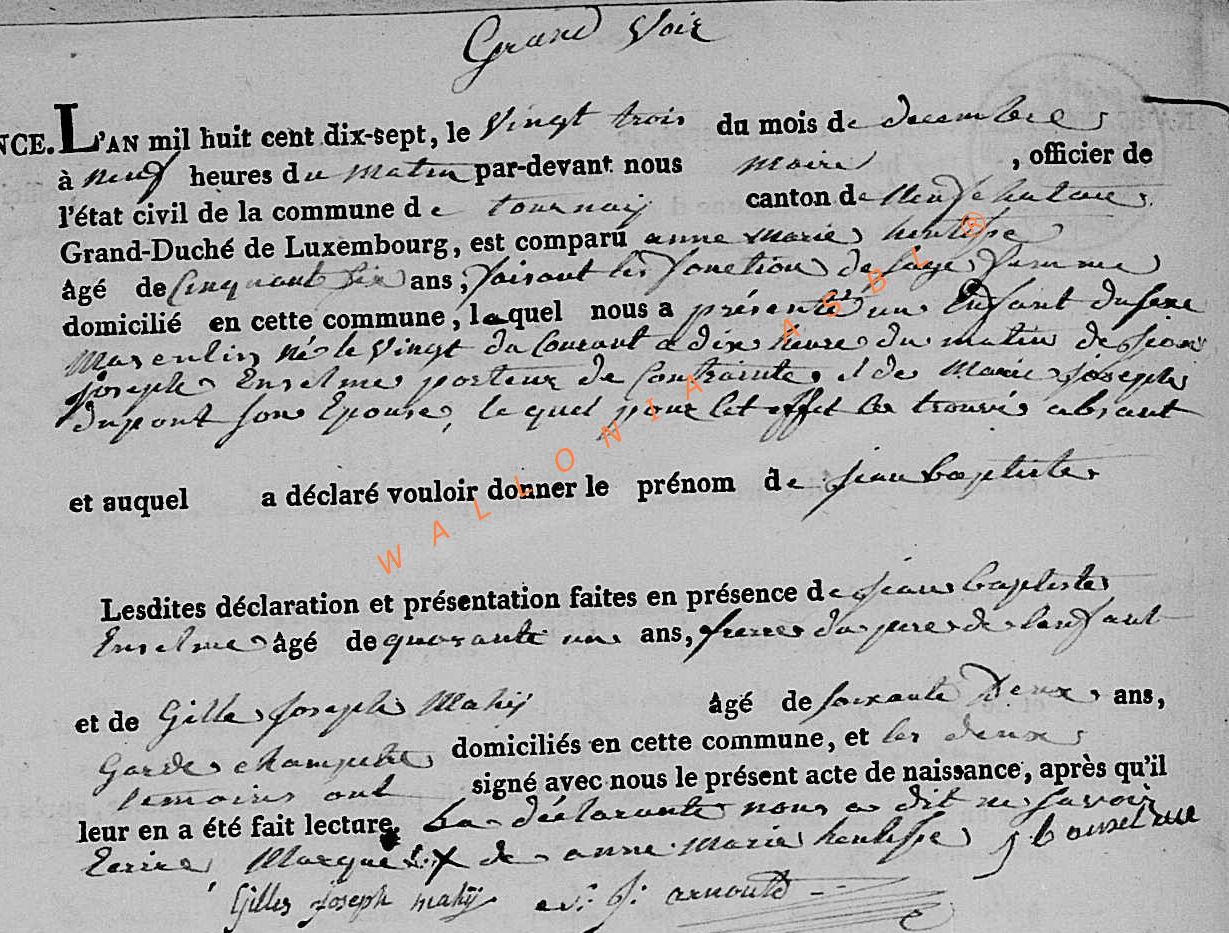 Grand Voir
NCE. L'AN mil huit cent dix-sept, le Vingt trois du mois de decembre
à neuf heures du matin par-devant nous maire , officier de
l'état civil de la commune de tournay canton de Neufchateau
Grand-Duché de Luxembourg, est comparu anne marie
âgé de Cinquant six ans, faisant les fonction de sage femme
domicilié en cette commune, laquel nous a présenté un Enfant du sexe
Masculin né le Vingt du Courant a dix heure du matin de
joseph Enselme porteur de Contrainte, et de Marie joseph
dupont son Epouse, le quel pour cet effet trouvé absant
et auquel a déclaré vouloir donner le prénom de jean baptiste
Lesdites déclaration et présentation faites en présence de jean baptiste
Enselme âgé de quarante un ans, frere du pere de lenfant
et de Gille joseph Mahy âgé de soixante Deux ans,
Garde champetre domiciliés en cette commune, et les deux
temoins ont signé avec nous le présent acte de naissance, après qu'il
leur en a été fait lecture. La déclarante nous a dit ne savoir
Ecrire Marque X de anne marie j b anselme
Gilles joseph mahÿ j: arnould
WALLONIA ASBL ®